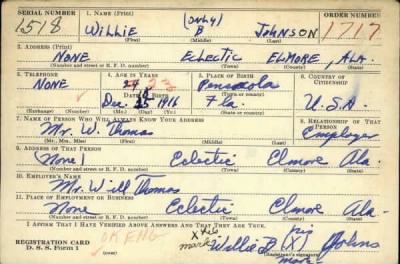 SERIAL NUMBER 1. NAME (Print) ORDER NUMBER
1518 WILLIE (ONLY) B JOHNSON 1717
(First) (Middle) (Last)
2. ADDRESS (Print)
NONE ECLECTIC ELMORE, ALA.
(Number and street or R. F. D. number) (Town) (County) (State)
3. TELEPHONE 4. AGE IN YEARS 5. PLACE OF BIRTH 6. COUNTRY OF CITIZENSHIP
NONE 24 23 Pensacola
DATE OF BIRTH (Town or county)
Dec. 25 1916 Fla. U.S.A.
(Exchange) (Number) (Mo.) (Day) (Yr.) (State or country)
7. NAME OF PERSON WHO WILL ALWAYS KNOW YOUR ADDRESS 8. RELATIONSHIP OF THAT PERSON
Mr. W. Thomas Employer
(Mr., Mrs., Miss) (First) (Middle) (Last)
9. ADDRESS OF THAT PERSON
None Eclectic Elmore Ala.
(Number and street or R. F. D. number) (Town) (County) (State)
10. EMPLOYER'S NAME
Mr. Will Thomas
11. PLACE OF EMPLOYMENT OR BUSINESS
None Eclectic Elmore Ala.
(Number and street or R. F. D. number) (Town) (County) (State)
I AFFIRM THAT I HAVE VERIFIED ABOVE ANSWERS AND THAT THEY ARE TRUE.
REGISTRATION CARD
D. S. S. Form 1
OK ENG
X his mark Willie B (X) Johns
his mark
(Registrant's signature)